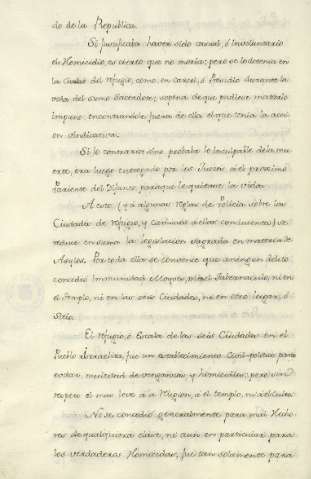 do de la Republica.
Si justificaba haver sido casual, ó involuntario
el Homicidio, es cierto que no moria; pero se lo detenia en
la Ciudad del refugio, como en Carcel, ó Presidio durante la
vida del sumo Sacerdote; so pena de que pudiese matarlo
impune encontrandole fuera de ella el que tenia la accion
en vindicativa.
Si lo contrario se probaba, le inculpable de la muer
te, era luego entregado por los Jueces á el proximo
Pariente del Difunto, para que le quitase la vida.
A esto, (y á algunas reglas de Policia sobre las
Ciudades de refugio, y caminos á ellas
reduce en suma la Legislacion Sagrada en materia de
Asylos. Por toda ella se convence que an en de
concedio inmunidad Moyses, ni al Tabernaculo, ni en
el Templo, ni en las seis Ciudades, ni en otro lugar, ó
Sitio.
El refugio, ó Escala de las seis Ciudades en el
Pueblo Israelita, fue un establecimiento Civil-politico para
evitar, multitud de venganzas, y homicidios; pero sin
respeto el mas leve á la Religion, ni al templo, ni al culto.
No se concedió generalmente para mal Hecho
res de qualquiera clase, ni aun en particular para
los verdaderos Homicidas; fue tan solamente para